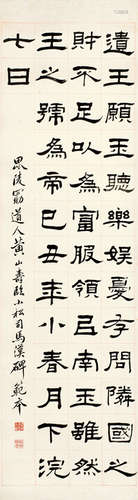 遺王願王聽樂娛憂存問隣國之
財不足以為富服領㠯南王雖然
王之號為帝己丑年小春月下浣
七日
毘陵勖道人黃山壽臨小松司馬漢碑範本